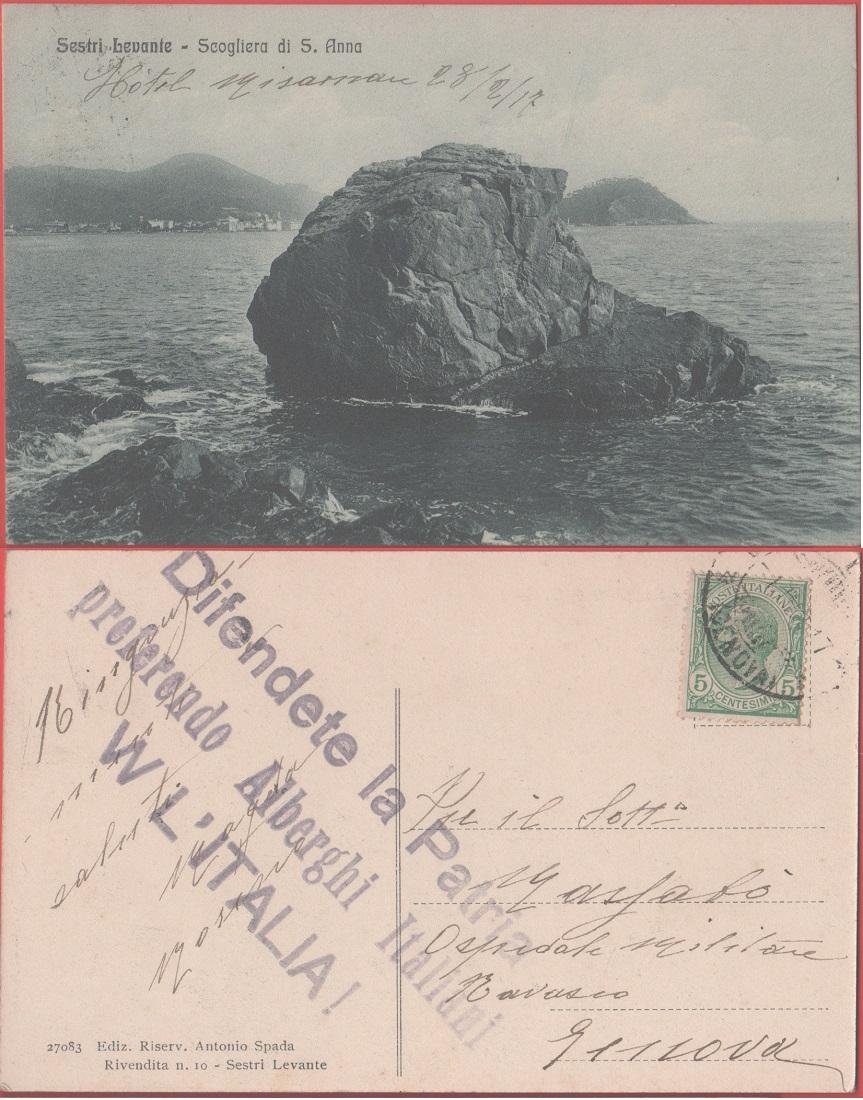 Sestri Levante - Scogliera di S. Anna
Hôtel 28/2/17
Difendete la Patria
preferendo Alberghi Italiani
W L'ITALIA!
saluti
POSTE ITALIANE
5 CENTESIMI 5
GENOVA
17
Per il Sott°
Ospedale Militare
Ravasco
Genova
27083 Ediz. Riserv. Antonio Spada
Rivendita n. 10 - Sestri Levante